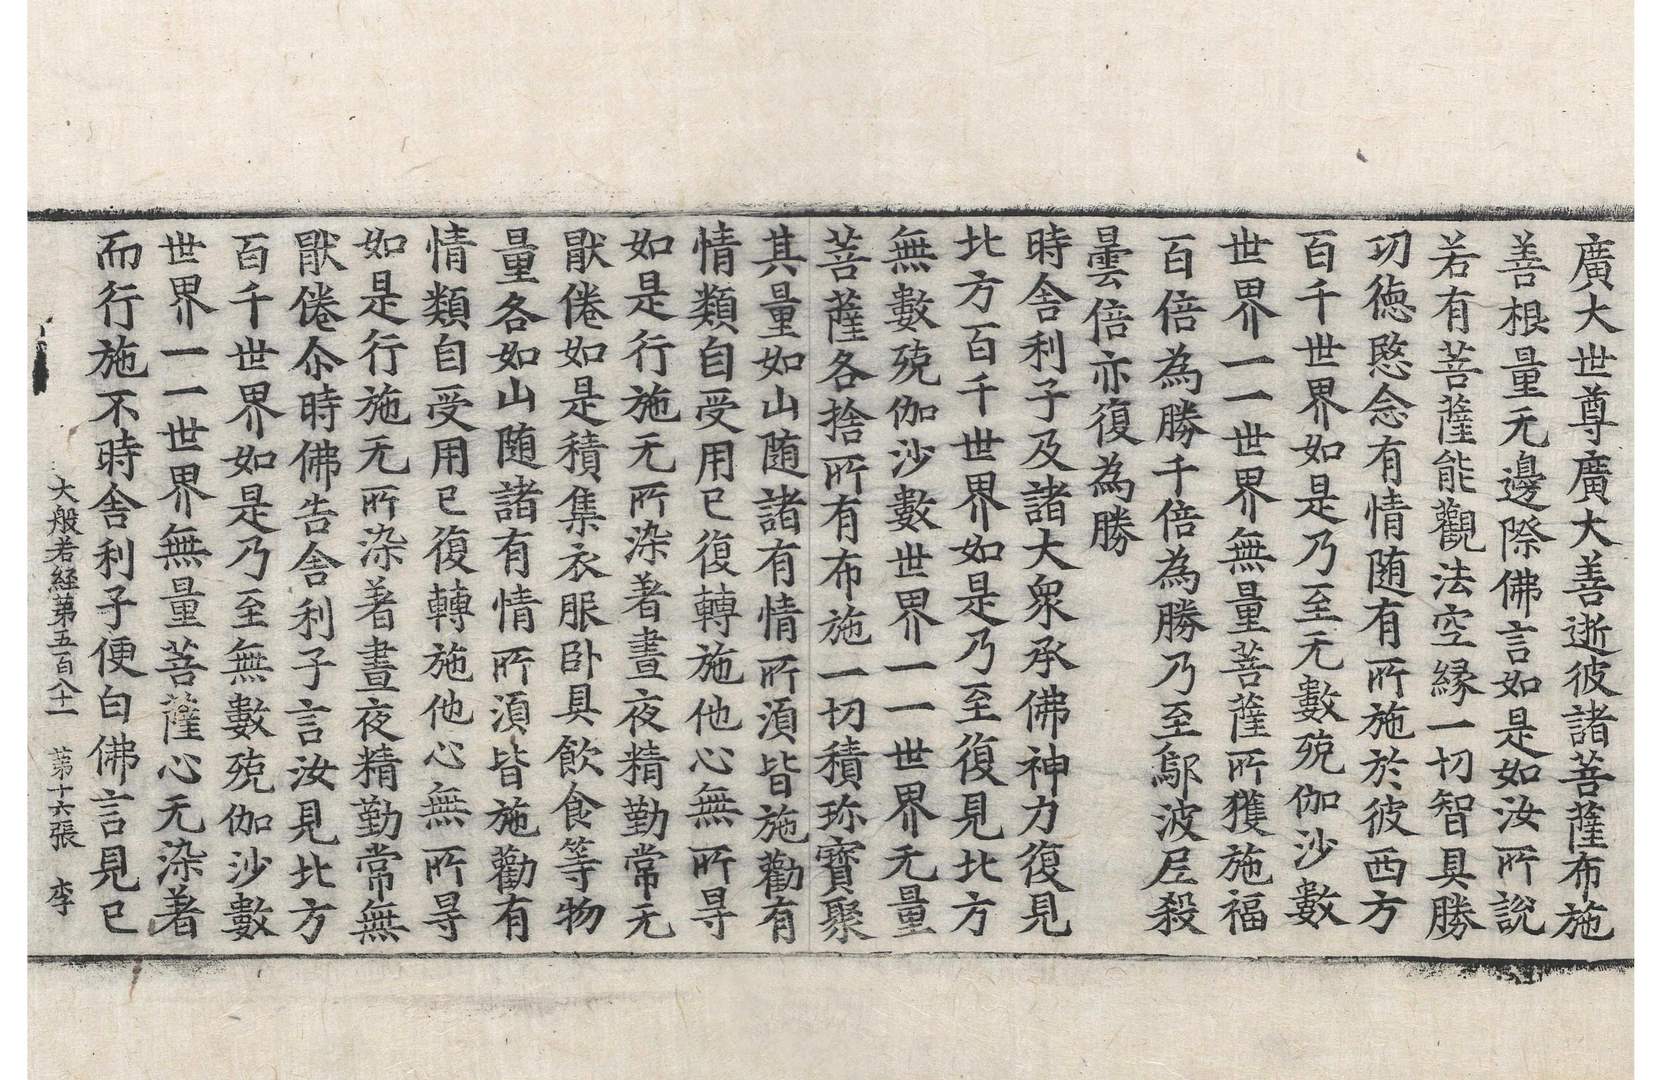 廣大世尊廣大善逝彼諸菩薩布施
善根量无邊際佛言如是如汝所說
若有菩薩能觀法空緣一切智具勝
功徳愍念有情随有所施於彼西方
百千世界如是乃至无數殑伽沙數
世界一一世界無量菩薩所獲施福
百倍為勝千倍為勝乃至鄔波尼殺
曇倍亦復為勝
時舍利子及諸大衆承佛神力復見
北方百千世界如是乃至復見北方
無數殑伽沙數世界一一世界无量
菩薩各捨所有布施一切積珎寳聚
其量如山随諸有情所湏皆施勸有
情類自受用已復轉施他心無所㝵
如是行施无所染著晝夜精勤常无
猒倦如是積集衣服卧具飲食等物
量各如山随諸有情所湏皆施勸有
情類自受用已復轉施他心無所㝵
如是行施无所染著晝夜精勤常無
猒倦尒時佛告舍利子言汝見北方
百千世界如是乃至無數殑伽沙數
世界一一世界無量菩薩心无染著
而行施不時舍利子便白佛言見已
大般若経第五百八十一 第十六張 李